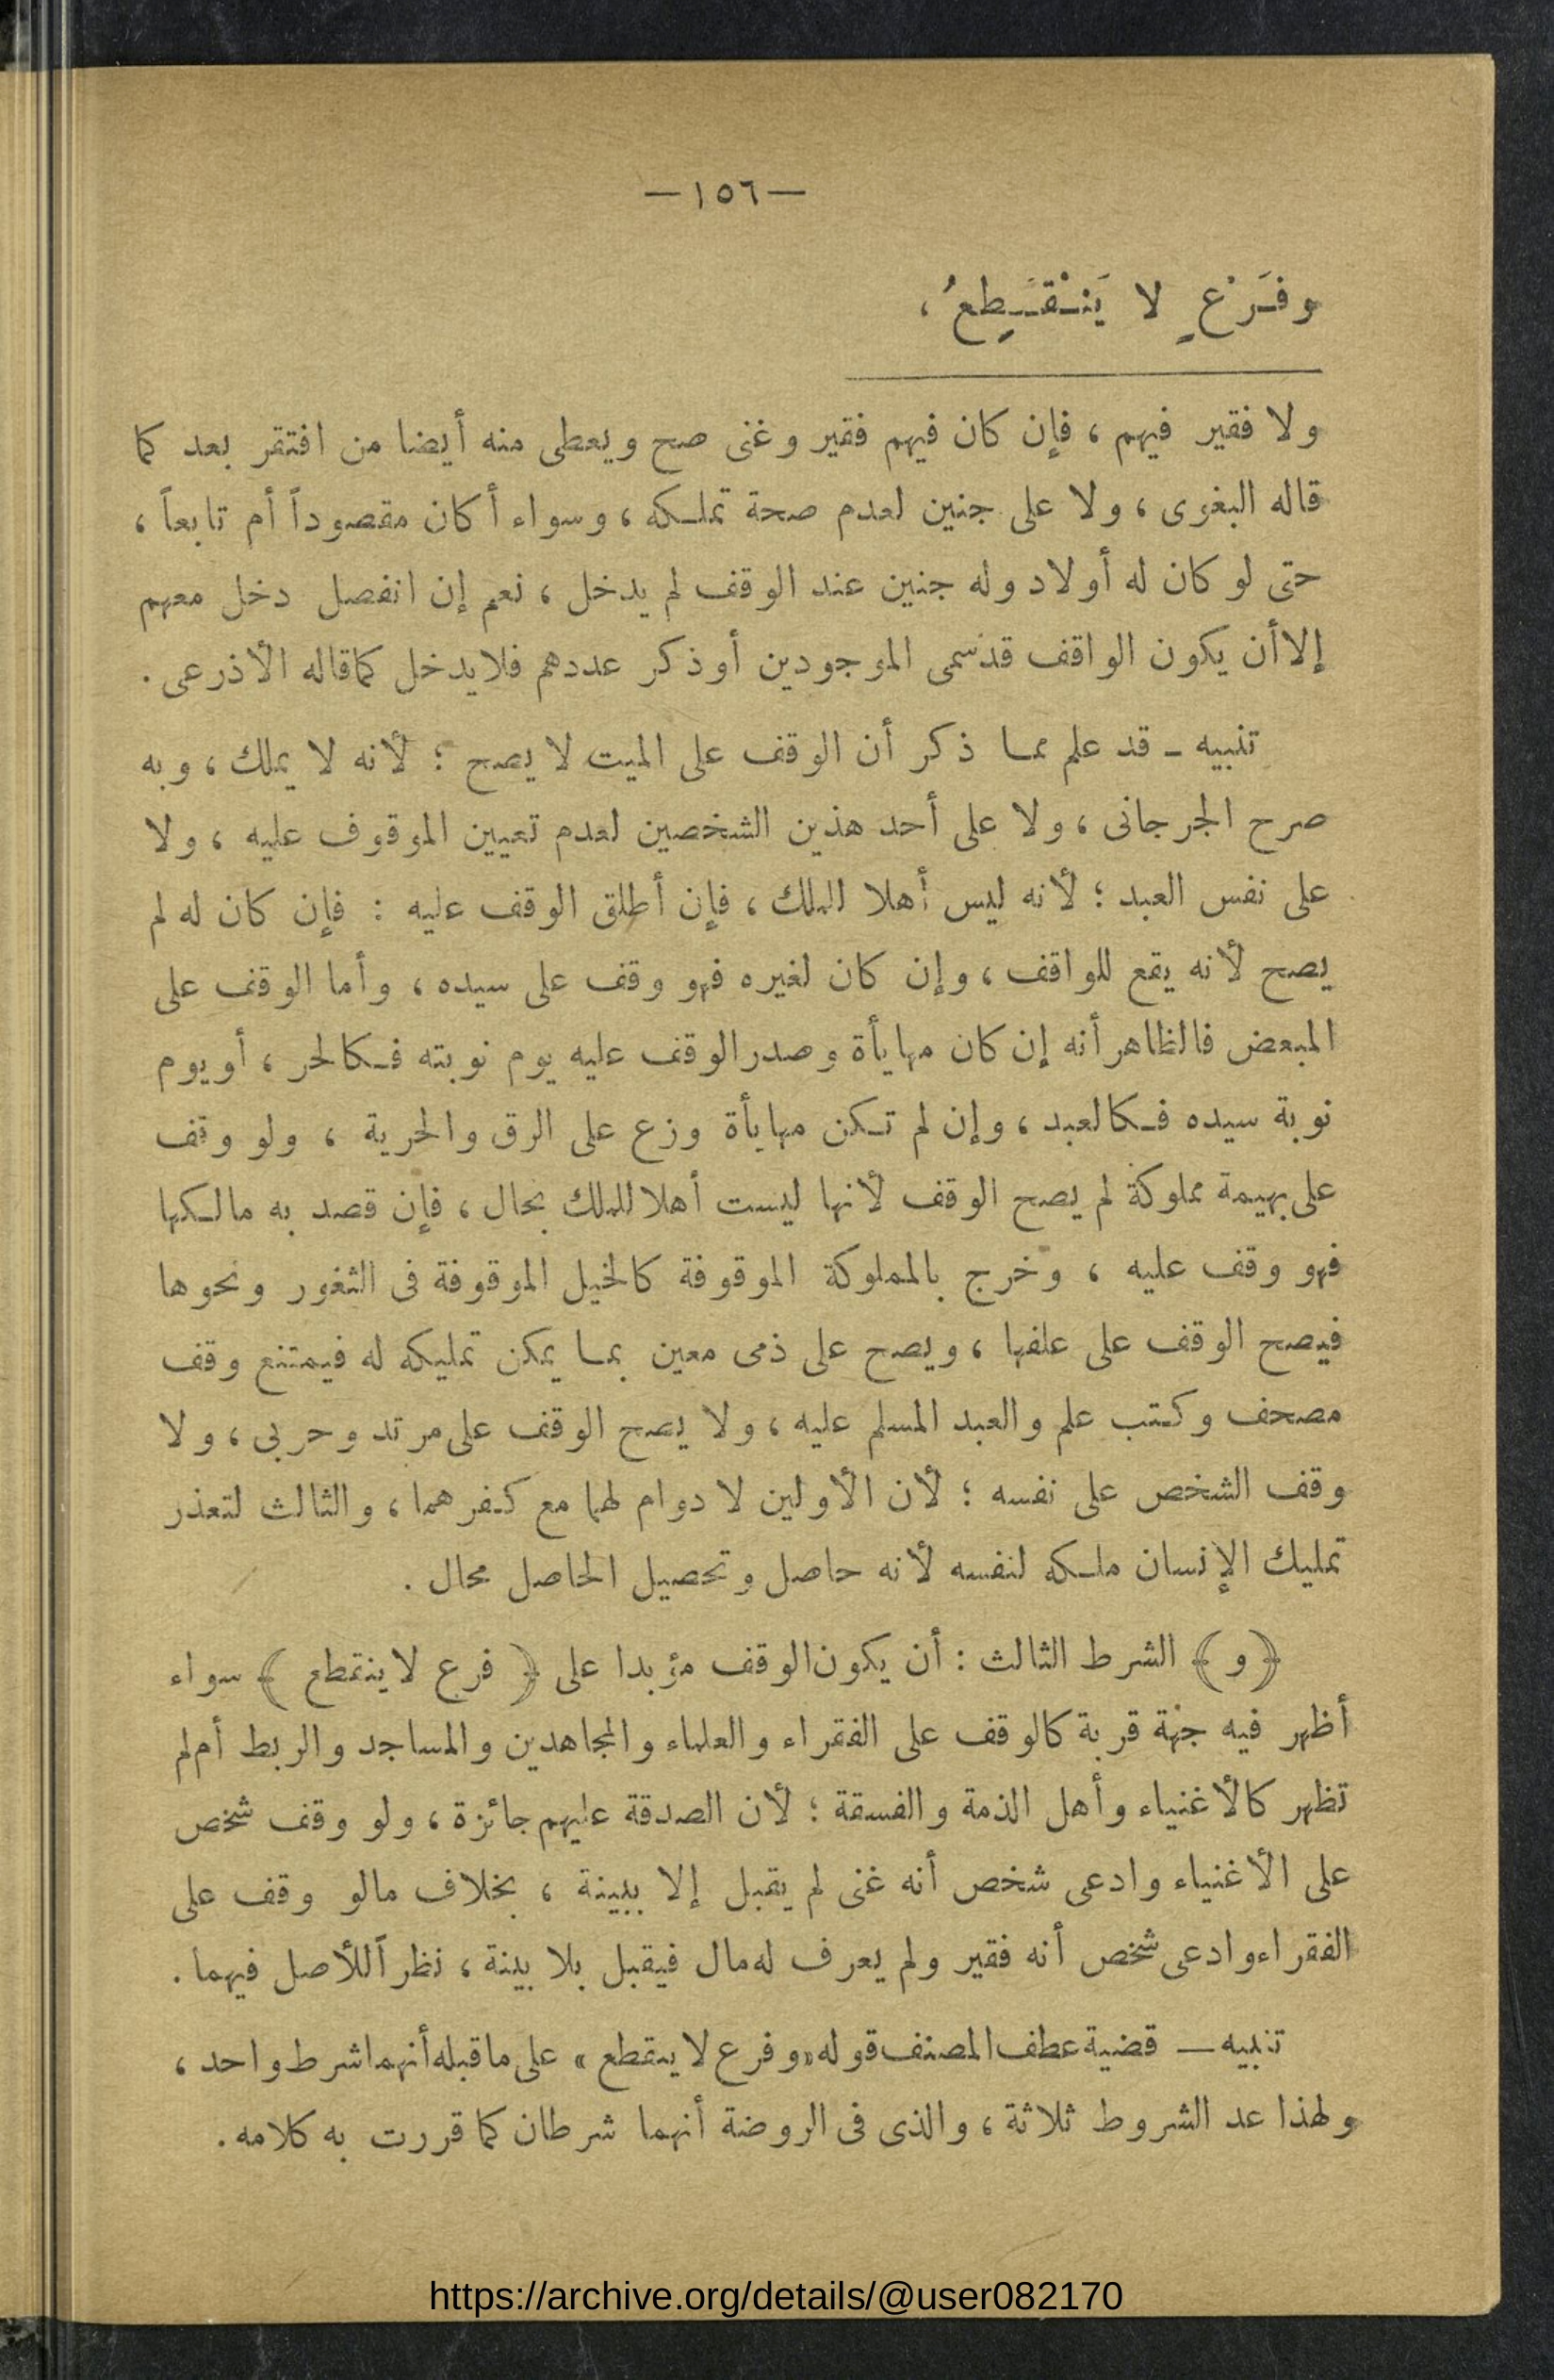 —١٥٦—
وفَرْعٍ لا يَنْقَطِعُ ،
ولا فقير فيهم ، فإن كان فيهم فقير وغنى صح ويعطى منه أيضا من افتقر بعد كما
قاله البغوى ، ولا على جنين لعدم صحة تملكه ، وسواء أكان مقصوداً أم تابعاً ،
حتى لو كان له أولاد وله جنين عند الوقف لم يدخل ، نعم إن انفصل دخل معهم
إلا أن يكون الواقف قد سمى الموجودين أو ذكر عددهم فلا يدخل كما قاله الأذرعى .
تنبيه ـ قد علم مما ذكر أن الوقف على الميت لا يصح ؛ لأنه لا يملك ، وبه
صرح الجرجانى ، ولا على أحد هذين الشخصين لعدم تعيين الموقوف عليه ، ولا
على نفس العبد ؛ لأنه ليس أهلا للملك ، فإن أطلق الوقف عليه : فإن كان له لم
يصح لأنه يقع للواقف ، وإن كان لغيره فهو وقف على سيده ، وأما الوقف على
المبعض فالظاهر أنه إن كان مهايأة وصدر الوقف عليه يوم نوبته فكالحر ، أو يوم
نوبة سيده فكالعبد ، وإن لم تكن مهايأة وزع على الرق والحرية ، ولو وقف
على بهيمة مملوكة لم يصح الوقف لأنها ليست أهلا للملك بحال ، فإن قصد به مالكها
فهو وقف عليه ، وخرج بالمملوكة الموقوفة كالخيل الموقوفة فى الثغور ونحوها
فيصح الوقف على علفها ، ويصح على ذمى معين بما يمكن تمليكه له فيمتنع وقف
مصحف وكتب علم والعبد المسلم عليه ، ولا يصح الوقف على مرتد وحربى ، ولا
وقف الشخص على نفسه ؛ لأن الأولين لا دوام لهما مع كفرهما ، والثالث لتعذر
تمليك الإنسان ملكه لنفسه لأنه حاصل وتحصيل الحاصل محال .
﴿ و ﴾ الشرط الثالث : أن يكون الوقف مؤبدا على ﴿ فرع لا ينقطع ﴾ سواء
أظهر فيه جهة قربة كالوقف على الفقراء والعلماء والمجاهدين والمساجد والربط أم لم
تظهر كالأغنياء وأهل الذمة والفسقة ؛ لأن الصدقة عليهم جائزة ، ولو وقف شخص
على الأغنياء وادعى شخص أنه غنى لم يقبل إلا ببينة ، بخلاف مالو وقف على
الفقراء وادعى شخص أنه فقير ولم يعرف له مال فيقبل بلا بينة ، نظراً للأصل فيهما .
تنبيه — قضية عطف المصنف قوله «وفرع لا ينقطع» على ما قبله أنهما شرط واحد ،
ولهذا عد الشروط ثلاثة ، والذى فى الروضة أنهما شرطان كما قررت به كلامه .
https://archive.org/details/@user082170